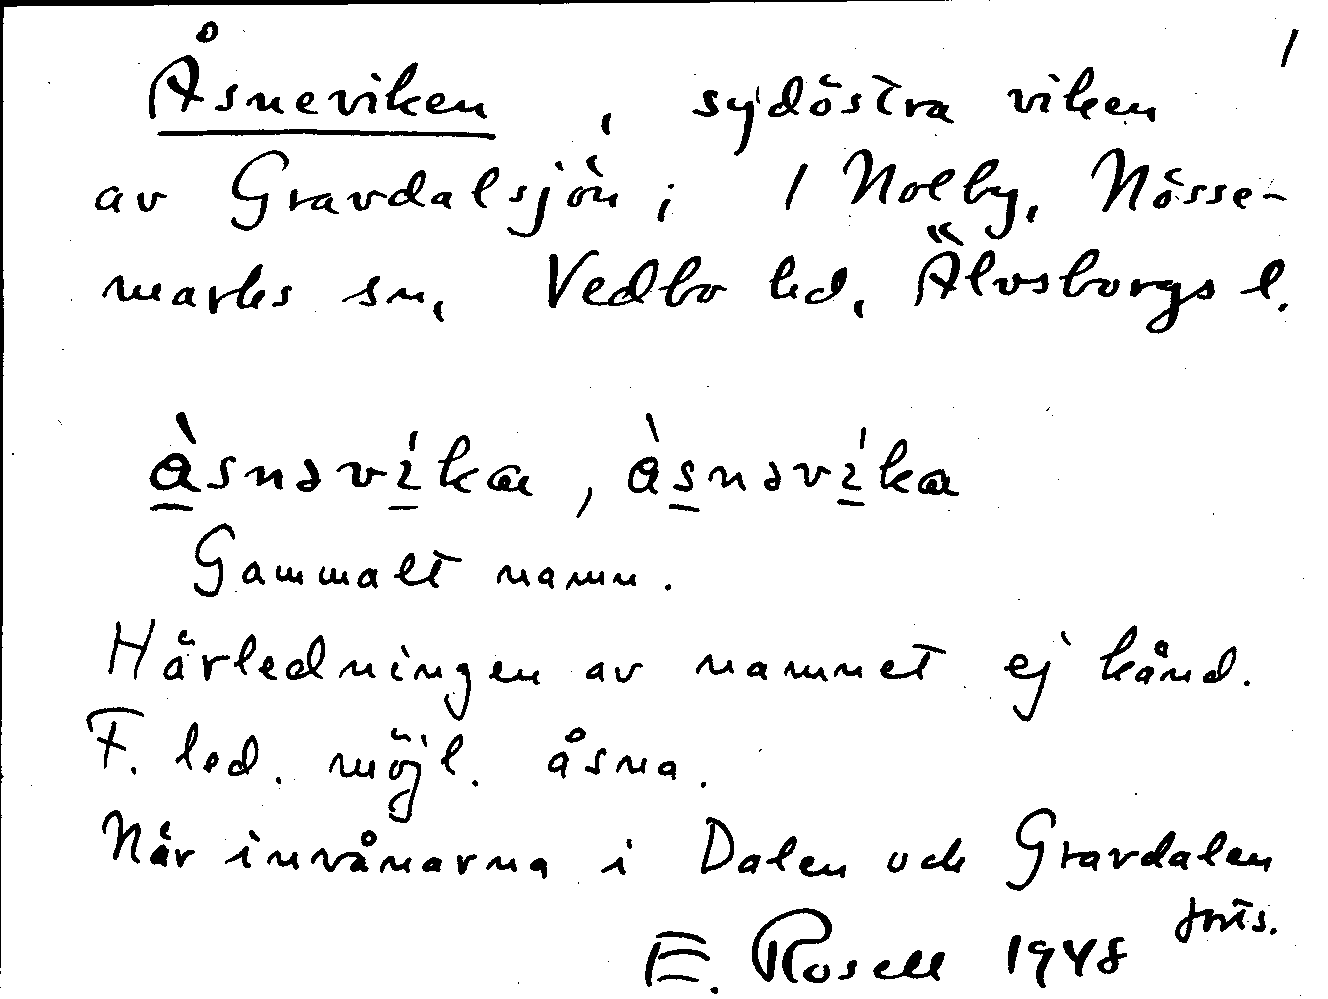 1
Åsneviken, sydöstra viken
av Gravdalsjön; 1 Nolby, Nösse-
marks sn, Vedbo hd, Älvsborgs l.
àsnəvíka, àsnəvíka
Gammalt namn.
Härledningen av namnet ej känd.
F. led. möjl. åsna.
När invånarna i Dalen och Gravdalen
forts.
E. Rosell 1948